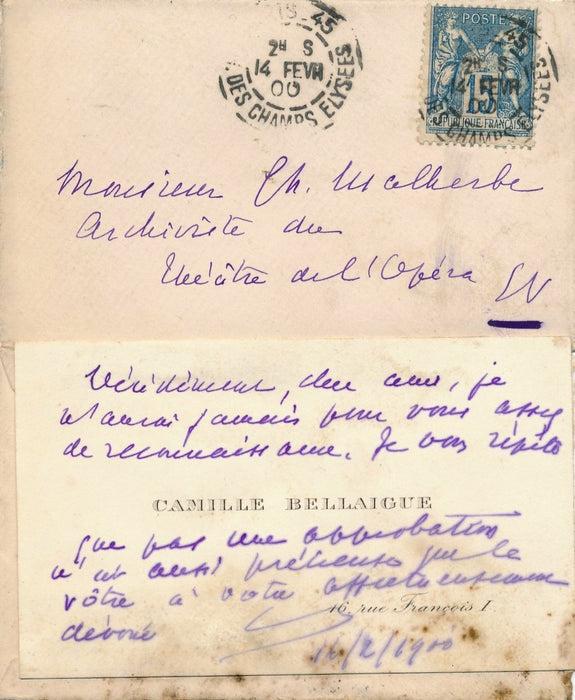 15 - 45
2H S
14 FEVR
00
DES CHAMPS ELYSEES
POSTES
45
2H S
14 FEVR
00
15
REPUBLIQUE FRANÇAISE
DES CHAMPS ELYSEES
Monsieur Ch. Malherbe
Archiviste du
Théâtre de l'Opéra
EV
Décidément, cher ami, je
n'aurai jamais pour vous assez
de reconnaissance. Je vous répète
CAMILLE BELLAIGUE
que pas une approbation
n'est aussi précieuse que la
vôtre à votre affectueusement
16, rue François I.
dévoué
14/2/1900